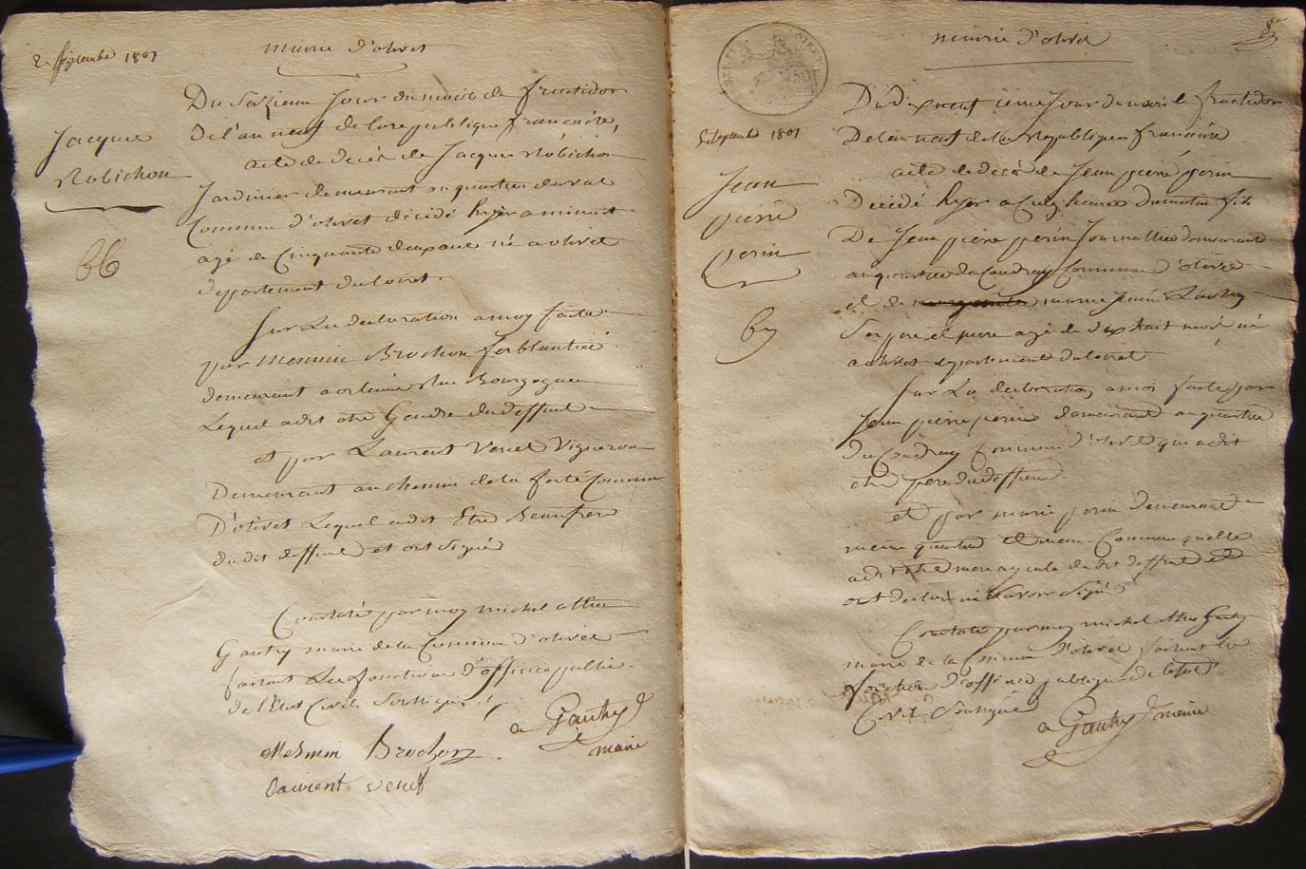 2 septembre 1801
mairie d'olivet
Jacque
Robichon
66
Du Saizieme Jour du mois de fructidor
De l'an neuf de la republique francaise,
acte de decés de Jacque Robichon
Jardinier demeurant au quartier du val
Commune d'olivet décédé hyer a minuit
agé de Cinquante deux ans né a olivet
departement du loiret.
Sur La declaration a moy faite
par Mesmin Brochon ferblantier
demeurant a orleans Rue Bourgogne
Lequel a dit être Gendre du deffunt
et par Laurent Venet Vigneron
Demeurant au chemin de la ferté Commune
D'olivet Lequel a dit Etre Beaufrere
du dit deffunt et ont Signé
Constaté par moy michel
Gautry maire de la Commune d'olivet
faisant Les fonctions d'officier public
de l'Etat Civile Soussigné
a Gautry
maire
Mesmin Brochon
Laurent Venet
mairie d'olivet
5 septembre 1801
Jean
pierre
perin
67
Du dixneuf ieme Jour du mois de fructidor
De l'an neuf de la Republique francaise
acte de decés de Jean pierre perin
Décédé hyer a Cinq heures du matin fils
De Jean pierre perin Journallier demeurant
au quartier du Coudray Commune d'olivet
et de marie
Ses pere et mere agé de dix huit mois né
a olivet departement du loiret
Sur La declaration a moi faite par
Jean pierre perin demeurant au quartier
du Coudray Commune d'olivet qui a dit
etre pere du deffunt
et par marie perin demeurant
meme quartier et meme Commune quelle
a dit Etre du dit deffunt et
ont declaré ne Savoir Signé
Constaté par moy michel Gautry
maire de la Commune D'olivet faisant les
fonction D'officier publique de l'etat
Civil Soussigné
a Gautry maire